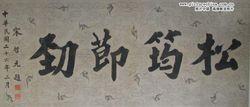 松筠節勁
中華民國二十六年二月
宋哲元題